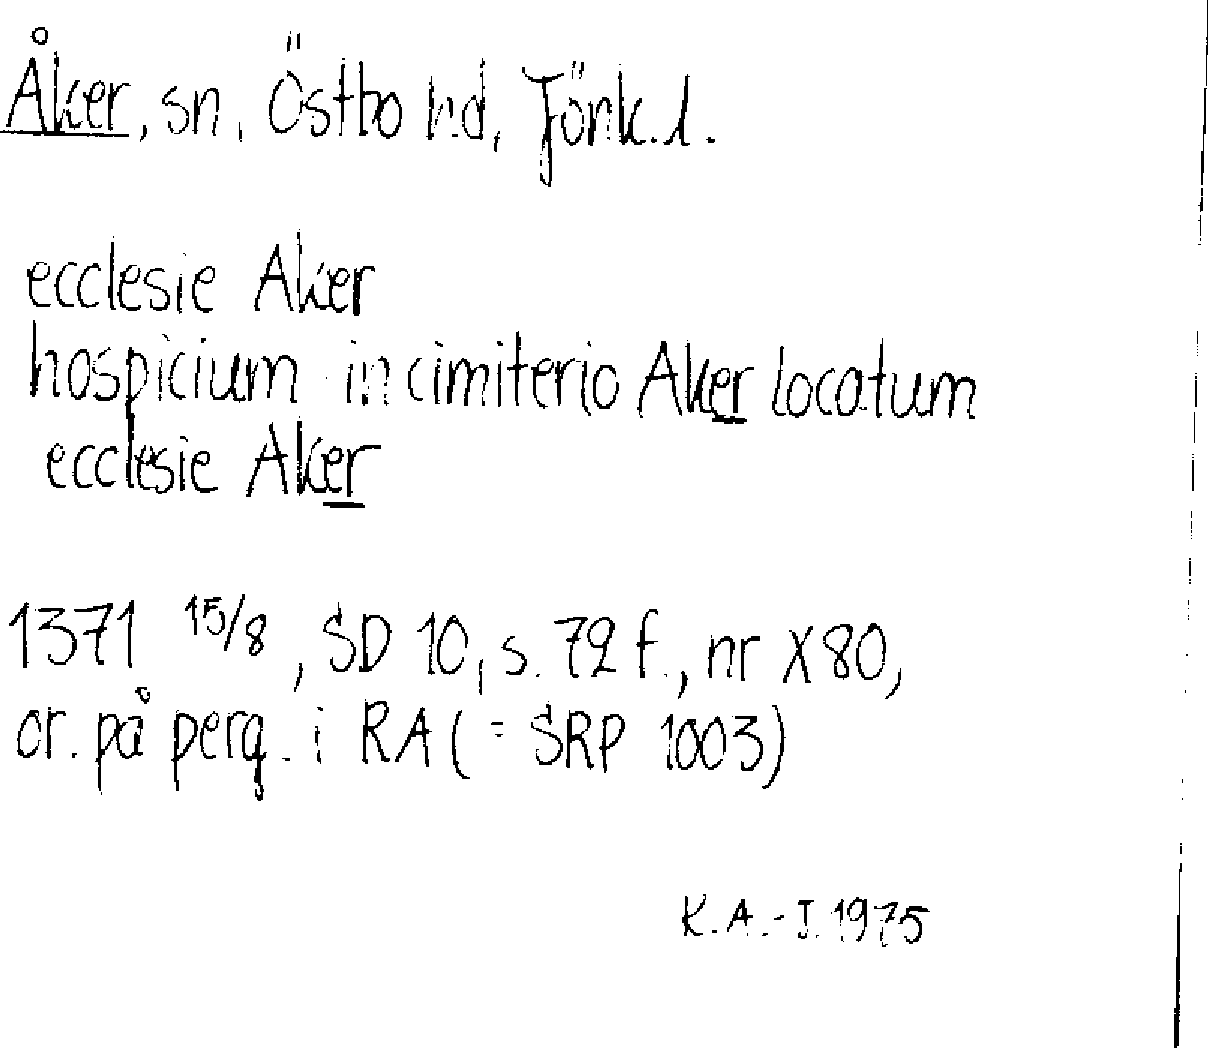 Åker, sn, Östbo hd, Jönk.l.
ecclesie Aker
hospicium in cimiterio Aker locatum
ecclesie Aker
1371 15/8, SD 10, s. 72 f., nr X80,
or. på perg. i RA (= SRP 1003)
K.A.-J. 1975